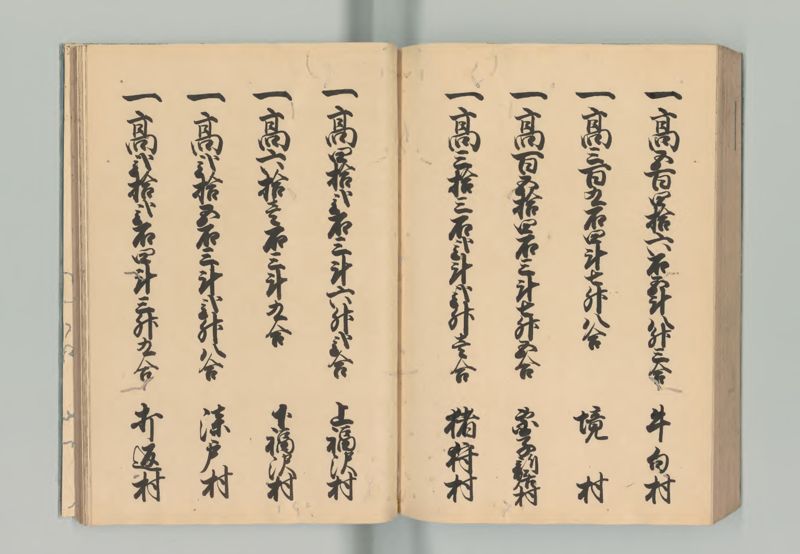 一高五百四拾六石五斗八升三合 牛句村
一高三百九石四斗七升八合 境村
一高百五拾四石三斗七升五合 村
一高三拾三石弐斗弐升壱合 猪狩村
一高四拾弐石三斗六升弐合 上福沢村
一高六拾壱石三斗九合 下福沢村
一高弐拾五石三斗弐升八合 漆戸村
一高弐拾弐石四斗三升九合 打返村